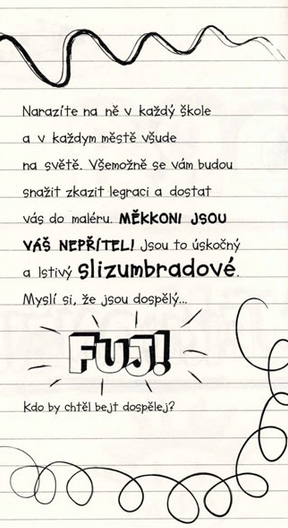 Narazíte na ně v každý škole
a v každym městě všude
na světě. Všemožně se vám budou
snažit zkazit legraci a dostat
vás do maléru. MĚKKONI JSOU
VÁŠ NEPŘÍTEL! Jsou to úskočný
a lstivý slizumbradové.
Myslí si, že jsou dospělý...
FUJ!
Kdo by chtěl bejt dospělej?